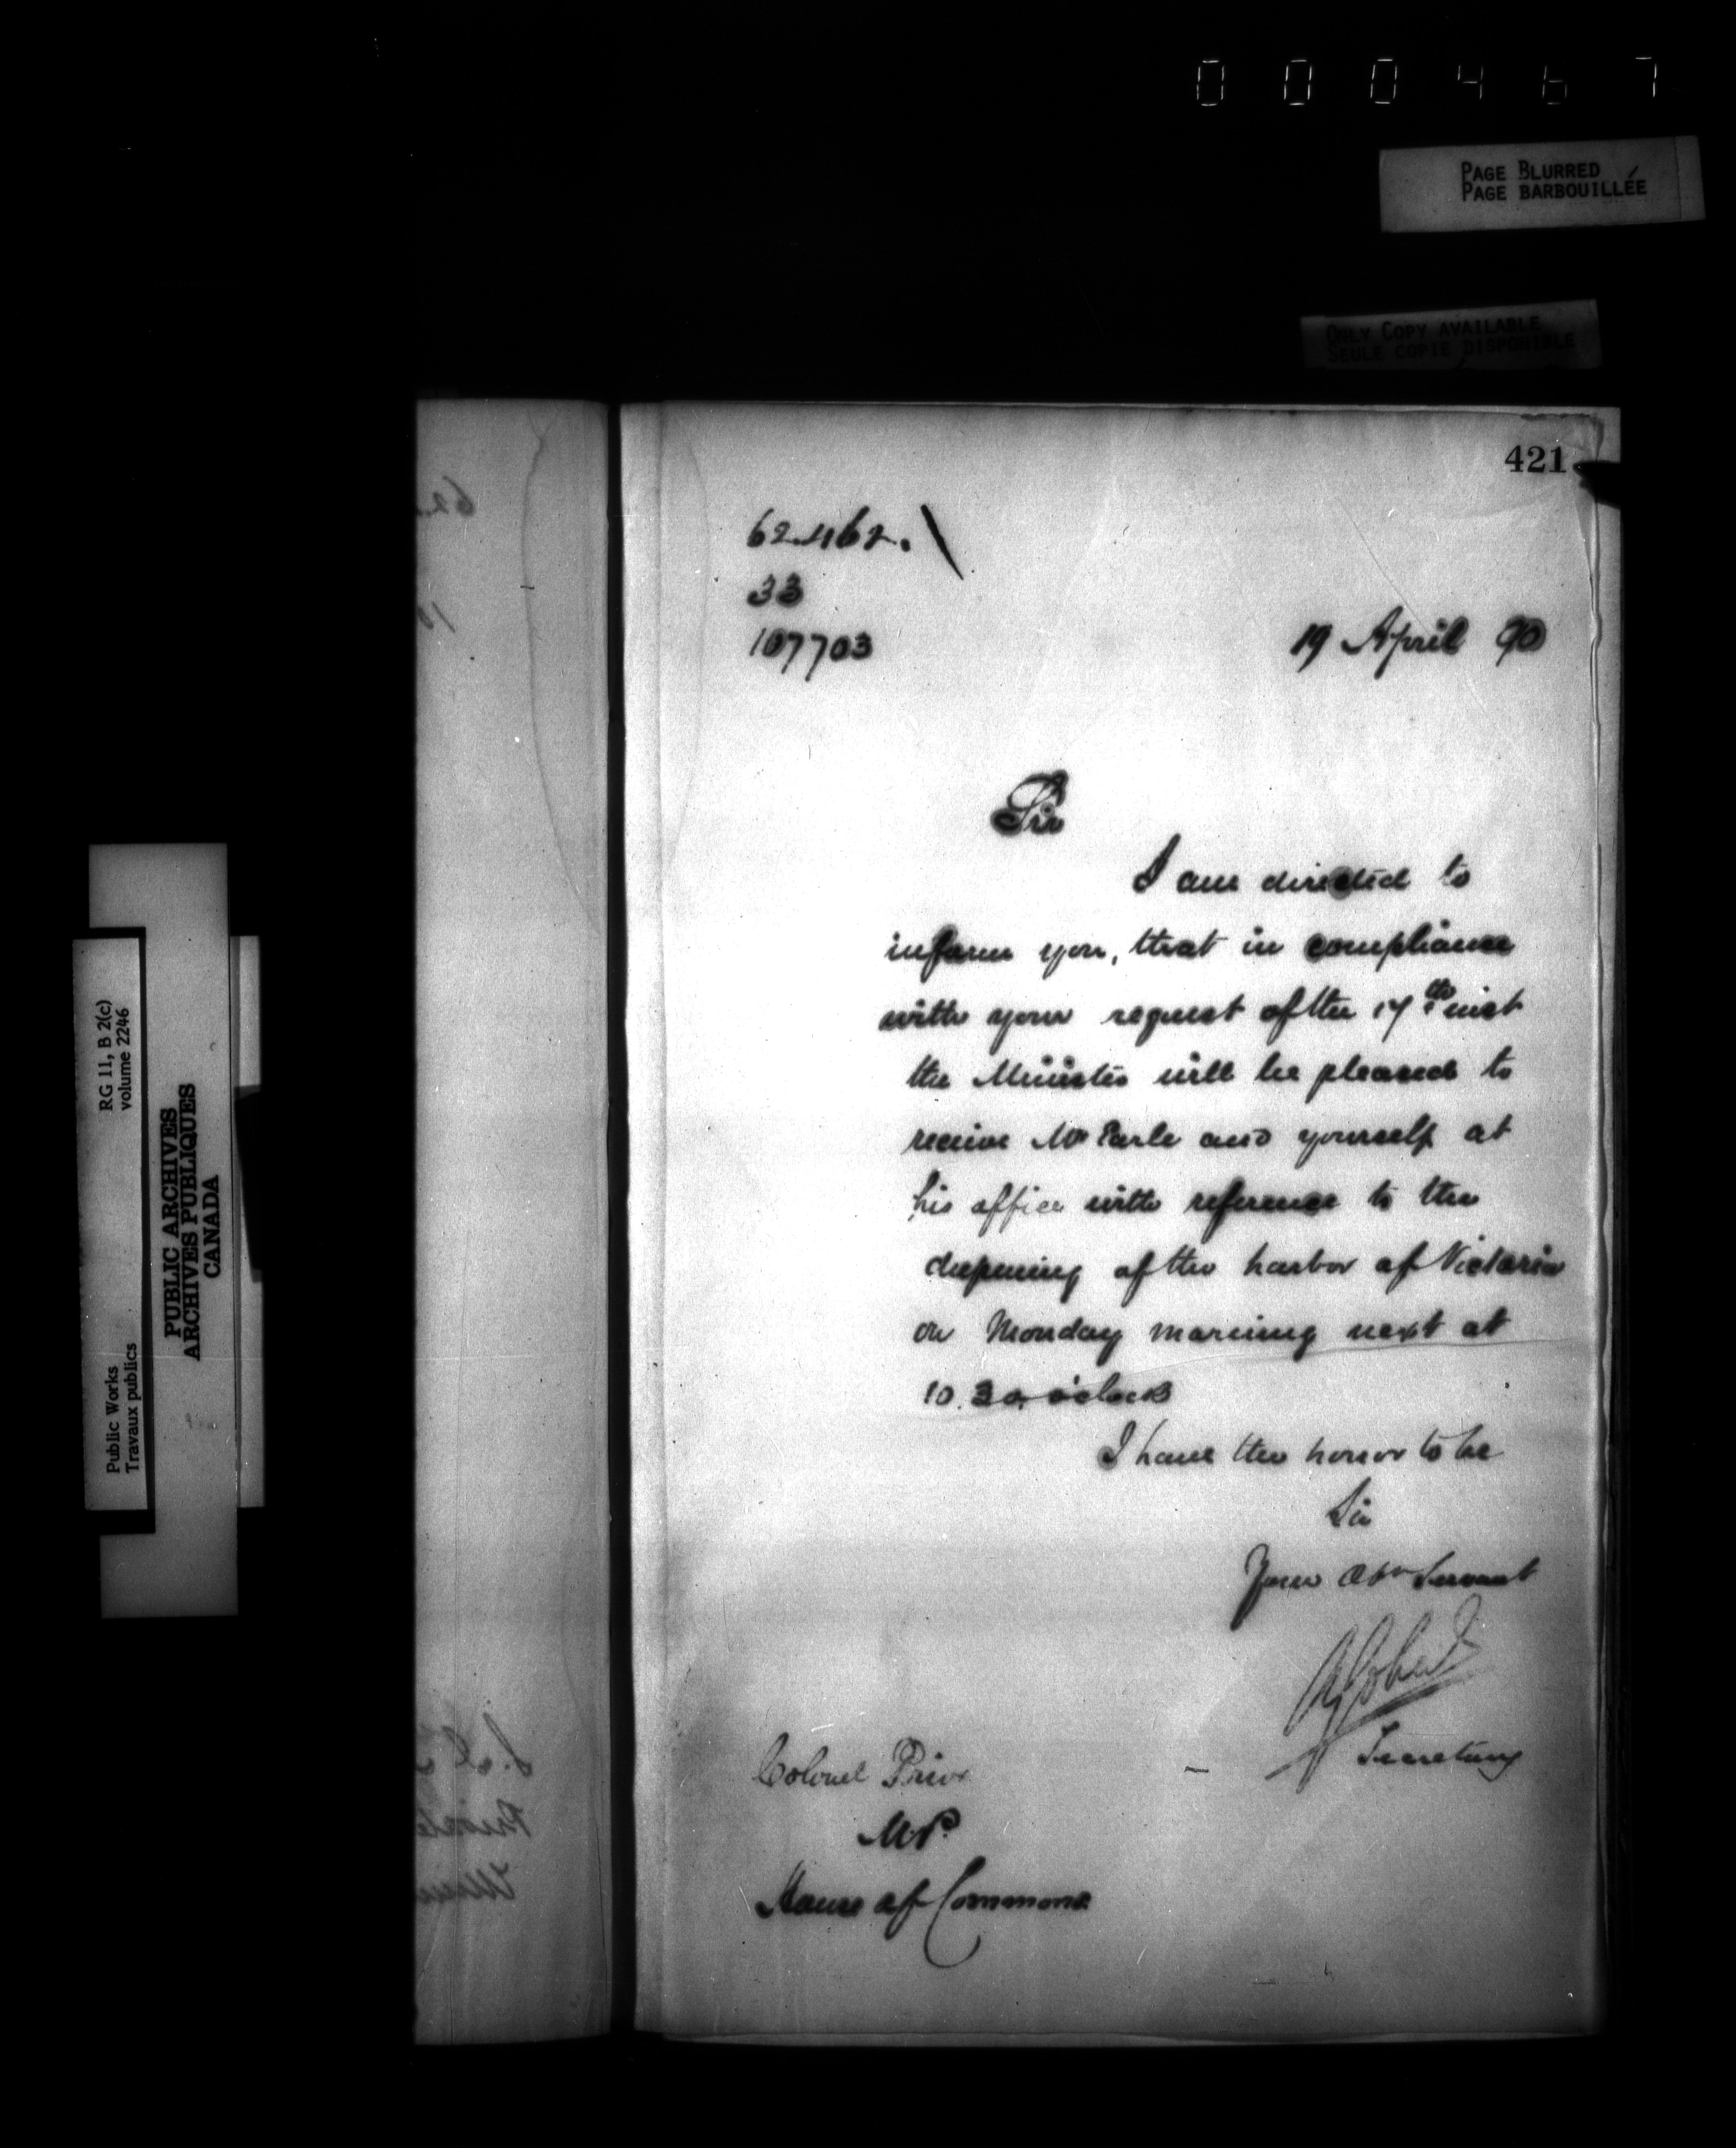 000467
PAGE BLURRED
PAGE BARBOUILLÉE
ONLY COPY AVAILABLE
SEULE COPIE DISPONIBLE
421
62462.
33
107703
19 April 90
Sir
I am directed to
inform you, that in compliance
with your request of the 17th inst
the Minister will be pleased to
receive Mr Earle and yourself at
his office with reference to the
deepening of the harbor of Victoria
on Monday morning next at
10.30. o'clock
I have the honor to be
Sir
Your Obt Servant
A Gobeil
Secretary
Colonel Prior
M.P.
House of Commons
RG 11, B 2(c)
volume 2246
Public Works
Travaux publics
PUBLIC ARCHIVES
ARCHIVES PUBLIQUES
CANADA